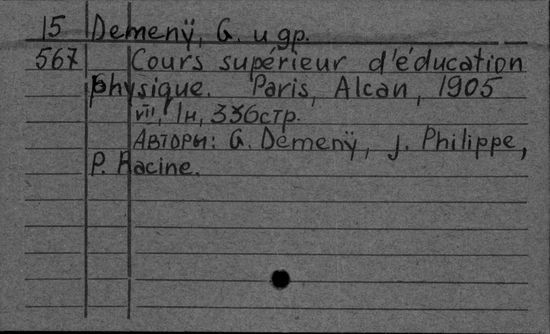 15 Demenÿ, G. и др.
567 Cours supérieur d'éducation
physique. Paris, Alcan, 1905
VII, 1н, 336стр.
Авторы: G. Demenÿ, J. Philippe,
P. Racine.